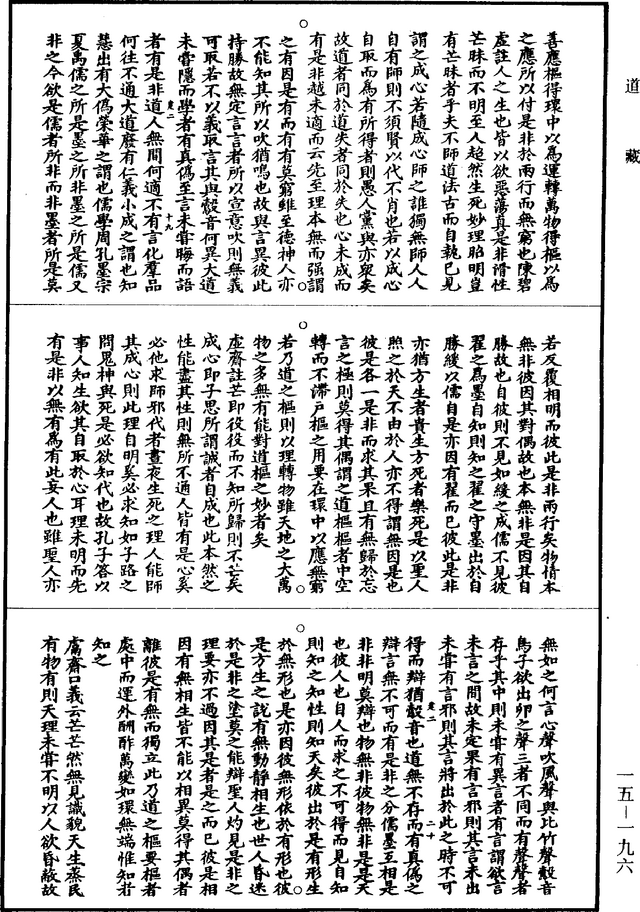 道藏
善應樞得環中以為運轉萬物得樞以為
之應所以付是非於兩行而無窮也陳碧
虛註人之生也皆以欲惡蕩真是非滑性
芒昧而不明至人超然生死妙理昭明豈
有芒昧者乎夫不師道法古而自執已見
謂之成心若隨成心師之誰獨無師人人
自有師則不須賢以代不肖也若以成心
自取而為有所得者則愚人黨與亦衆矣
故道者同於道失者同於失也心未成而
有是非越未適而云先至理本無而強謂
之有因是有而有有莫窮雖至德神人亦
不能知其所以吹猶鳴也故與言異彼此
持勝故無定言言者所以宣意吹則無義
可取若不以義取言其與鷇音何異大道
未嘗隱而學者有真偽至言未嘗晦而語
者有是非道人無間何適不有言化羣品
何往不通大道廢有仁義小成之謂也知
慧出有大偽榮華之謂也儒學周孔墨宗
夏禹儒之所是墨之所非墨之所是儒又
非之今欲是儒者所非而非墨者所是莫
卷二
十九
若反覆相明而彼此是非兩行矣物情本
無非彼因其對偶故也本無非是因其自
勝故也自彼則不見如緩之成儒不見彼
翟之為墨自知則知之翟之守墨出於自
勝緩以儒自是亦因有翟而已彼此是非
亦猶方生者貴生方死者樂死是以聖人
照之於天不由於人亦不得謂無因是也
彼是各一是非而求其果且有無歸於忘
言之極則莫得其偶謂之道樞樞者中空
轉而不滯戶樞之用要在環中以應無窮
若乃道之樞則以理轉物雖天地之大萬
物之多無有能對道樞之妙者矣
虛齋註芒即役役而不知所歸則不芒矣
成心即子思所謂誠者自成也此本然之
性能盡其性則無所不通人皆有是心奚
必他求師邪代者晝夜生死之理人能師
其成心則此理自明奚必求知如子路之
問鬼神與死是必欲知代也故孔子答以
事人知生欲其自取於心耳理未明而先
有是非以無有為有此妄人也雖聖人亦
無如之何言心聲吹風聲與比竹聲鷇音
鳥子欲出卵之聲三者不同而有聲聲者
存乎其中則未嘗有異言者有言謂欲言
未言之間故未定果有言邪則其言未出
未嘗有言邪則其言將出於此之時不可
得而辯猶鷇音也道無不存而有真偽之
辯言無不可而有是非之分儒墨互相是
非非明莫辯也物無非彼物無非是是天
也彼人也自人而求之不可得而見自知
則知之知性則知天矣彼出於是有形生
於無形也是亦因彼無形依於有形也彼
是方生之說有無動靜相生也世人昏迷
於是非之塗莫之能辯聖人灼見是非之
理要亦不過因其是者是之而已彼是相
因有無相生皆不能以相異莫得其偶者
離彼是有無而獨立此乃道之樞要樞者
處中而運外酬酢萬變如環無端惟知者
知之
鬳齋口義云芒芒然無見識貌天生蒸民
有物有則天理未嘗不明以人欲昏蔽故
卷二
二十
一五－一九六